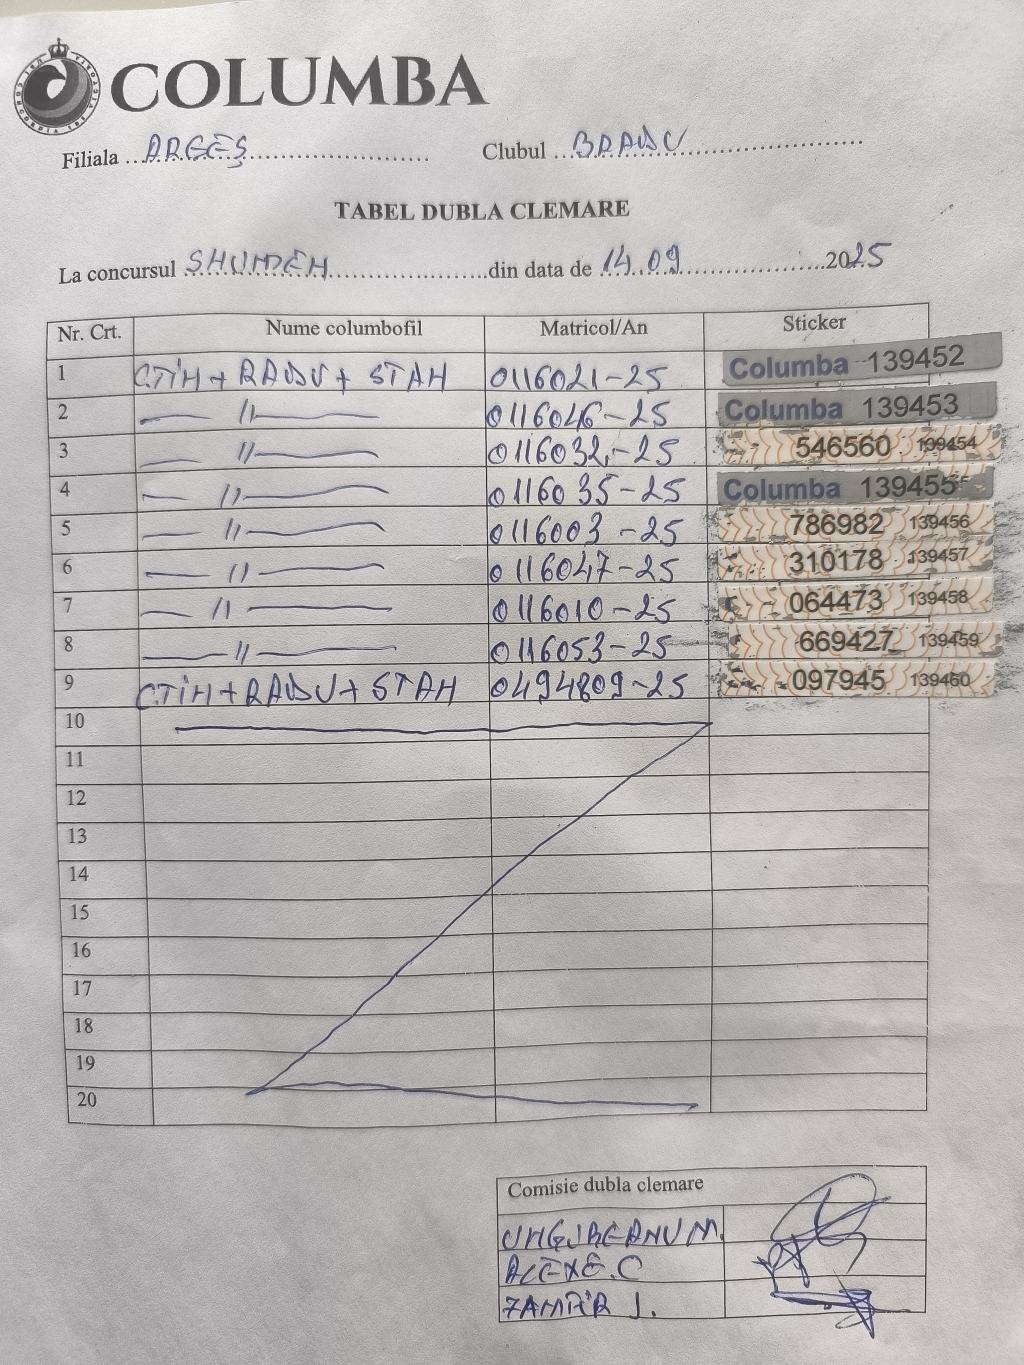 COLUMBA
Filiala ARGEȘ Clubul BRADU
TABEL DUBLA CLEMARE
La concursul SHUMEN din data de 14.09 2025
Nr. Crt. Nume columbofil Matricol/An Sticker
1 CTIN + RADU + STAN 0116021-25 Columba 139452
2 — // — 0116046-25 Columba 139453
3 — // — 0116032-25 546560 139454
4 — // — 0116035-25 Columba 139455
5 — // — 0116003-25 786982 139456
6 — // — 0116047-25 310178 139457
7 — // — 0116010-25 064473 139458
8 — // — 0116053-25 669427 139459
9 CTIN + RADU + STAN 0494809-25 097945 139460
10
11
12
13
14
15
16
17
18
19
20
Comisie dubla clemare
UNGUREANU M.
ALEXE.C
ZAMFIR I.